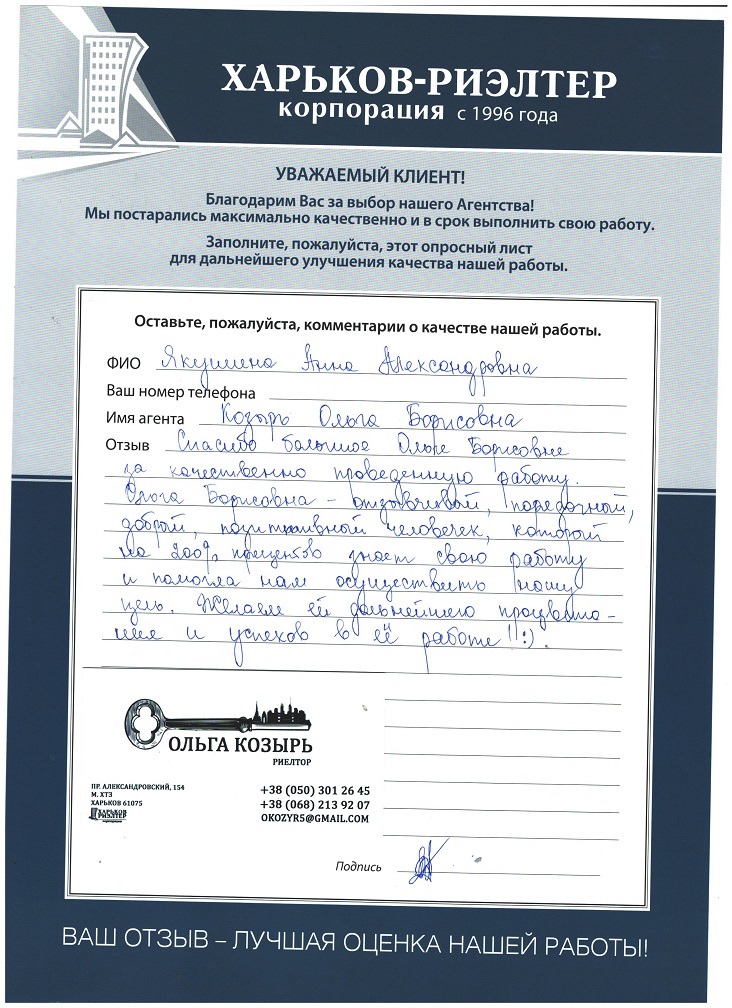 ХАРЬКОВ-РИЭЛТЕР
корпорация с 1996 года
УВАЖАЕМЫЙ КЛИЕНТ!
Благодарим Вас за выбор нашего Агентства!
Мы постарались максимально качественно и в срок выполнить свою работу.
Заполните, пожалуйста, этот опросный лист
для дальнейшего улучшения качества нашей работы.
Оставьте, пожалуйста, комментарии о качестве нашей работы.
ФИО Якушина Анна Александровна
Ваш номер телефона
Имя агента Козырь Ольга Борисовна
Отзыв Спасибо большое Ольге Борисовне
за качественно проведенную работу.
Ольга Борисовна - отзывчивый, порядочный,
добрый, позитивный человечек, который
на 200% процентов знает свою работу
и помогла нам осуществить нашу
цель. Желаем ей дальнейшего процвета-
ния и успехов в её работе!! :)
ОЛЬГА КОЗЫРЬ
РИЕЛТОР
ПР. АЛЕКСАНДРОВСКИЙ, 154
М. ХТЗ
ХАРЬКОВ 61075
ХАРЬКОВ
РИЭЛТЕР
корпорация
+38 (050) 301 26 45
+38 (068) 213 92 07
OKOZYR5@GMAIL.COM
Подпись
ВАШ ОТЗЫВ – ЛУЧШАЯ ОЦЕНКА НАШЕЙ РАБОТЫ!